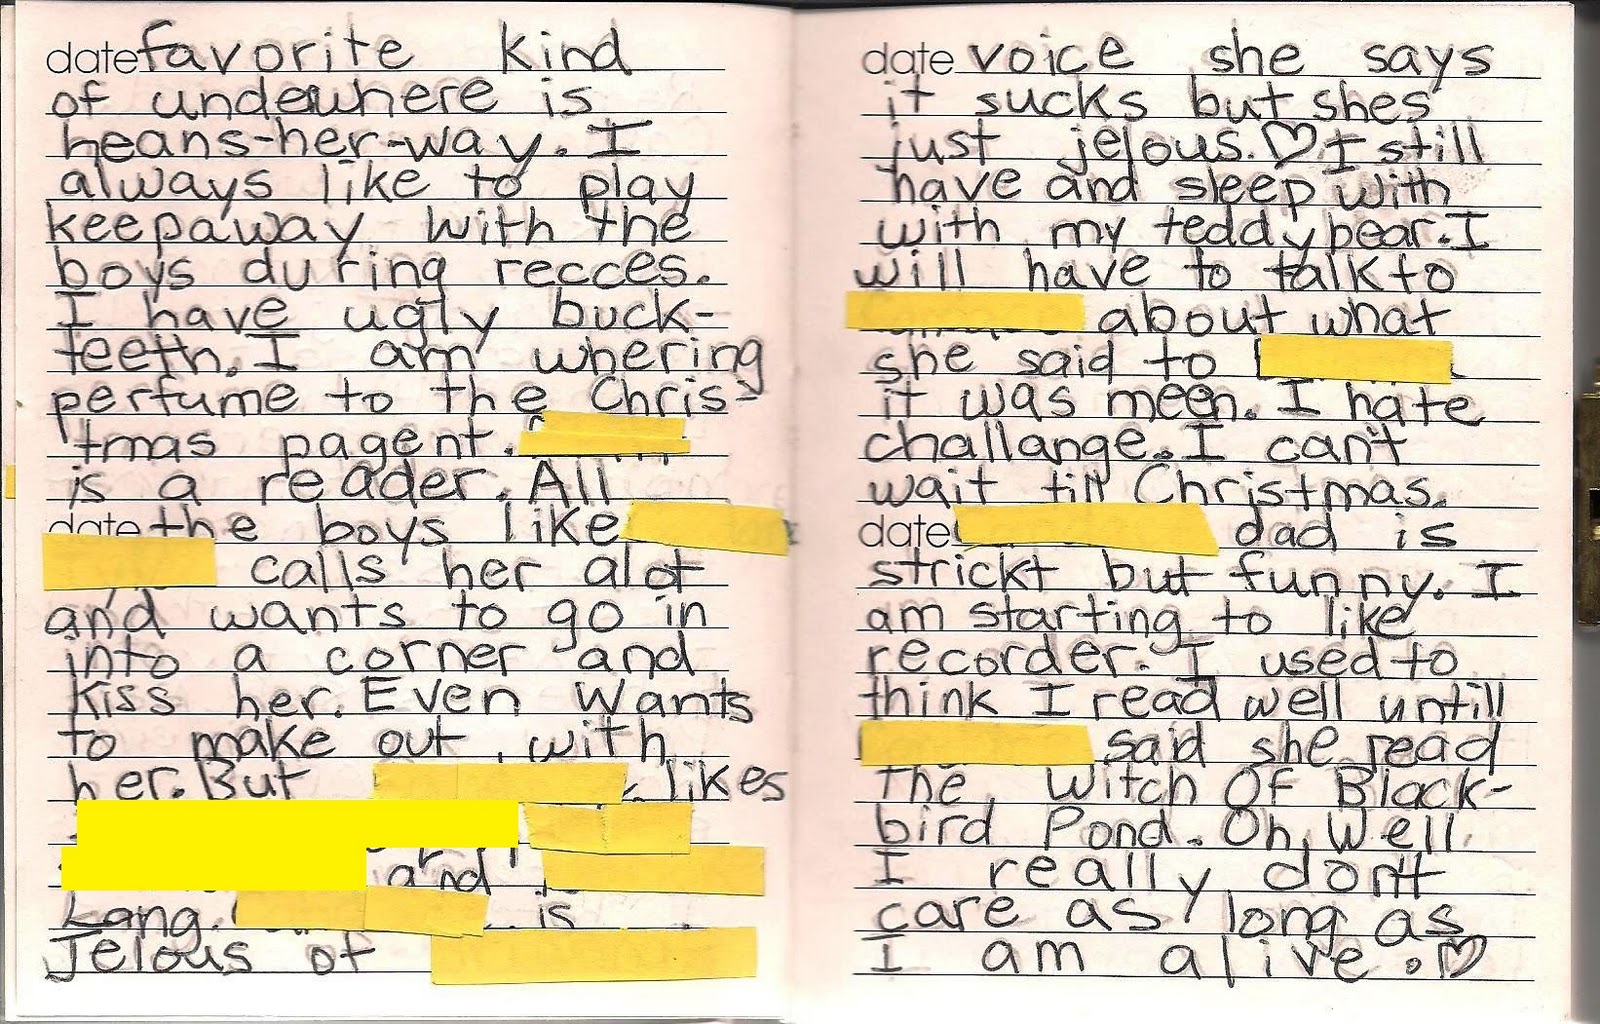 date favorite kind
of undewhere is
heans-her-way. I
always like to play
keepaway with the
boys during recces.
I have ugly buck-
teeth. I am whering
perfume to the Chris-
tmas pagent.
is a reader. All
date the boys like
calls her alot
and wants to go in
into a corner and
kiss her. Even wants
to make out with
her. But likes
and
Lang. is
Jelous of
date voice she says
it sucks but shes
just jelous. ♡ I still
have and sleep with
with my teddy bear. I
will have to talk to
about what
she said to
it was meen. I hate
challange. I can't
wait till Christmas.
date dad is
strickt but funny. I
am starting to like
recorder. I used to
think I read well untill
said she read
The Witch Of Black-
bird Pond. Oh, Well
I really don't
care as long as
I am alive. ♡